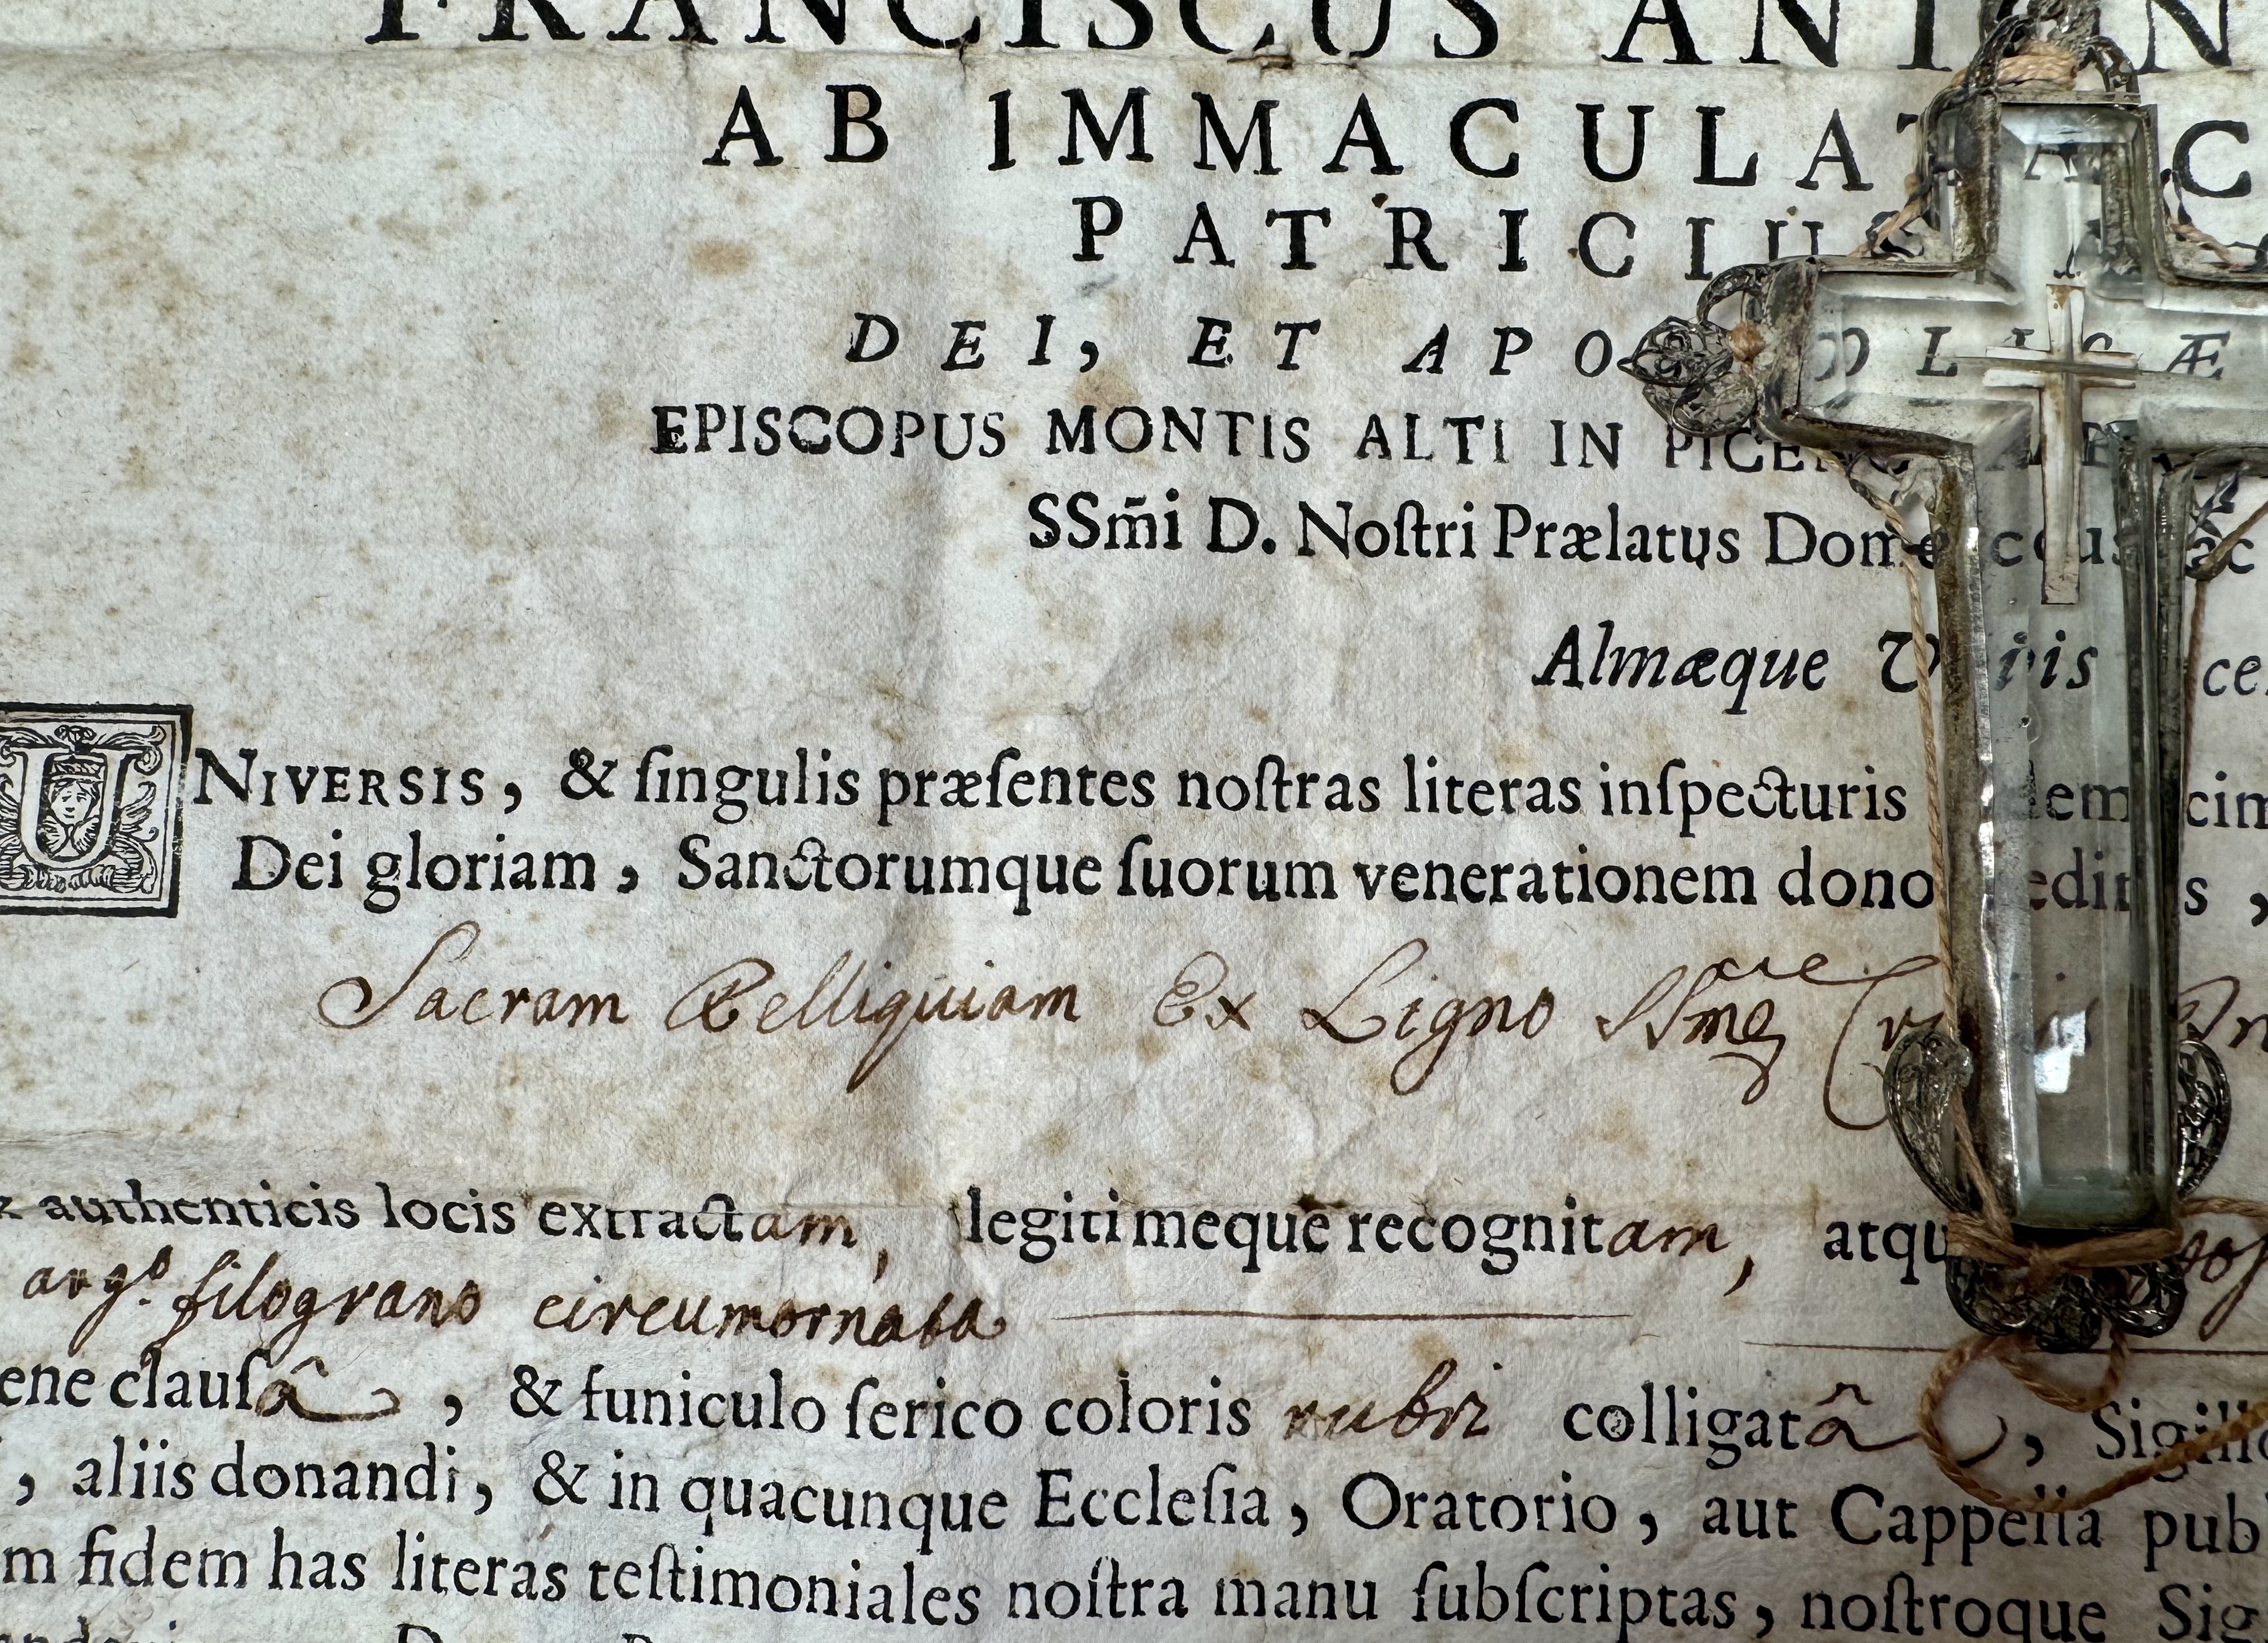 FRANCISCUS
AB IMMACULA C
PATRICIUS
DEI, ET APO OLICÆ
EPISCOPUS MONTIS ALTI IN PICENO
SSm̃i D. Noſtri Prælatus Dome
Almæque ce
UNIVERSIS, & ſingulis præſentes noſtras literas inſpecturis dem cim
Dei gloriam, Sanctorumque ſuorum venerationem dono edit s,
Sacram Relliquiam Ex Ligno SSmę Cr
authenticis locis extractam, legitimeque recognitam, atqu
argº. filograno circumornata
ene clauſâ, & funiculo ſerico coloris rubri colligatâ, Sigill
, aliis donandi, & in quacunque Eccleſia, Oratorio, aut Cappella pub
m fidem has literas teſtimoniales noſtra manu ſubſcriptas, noſtroque Sig